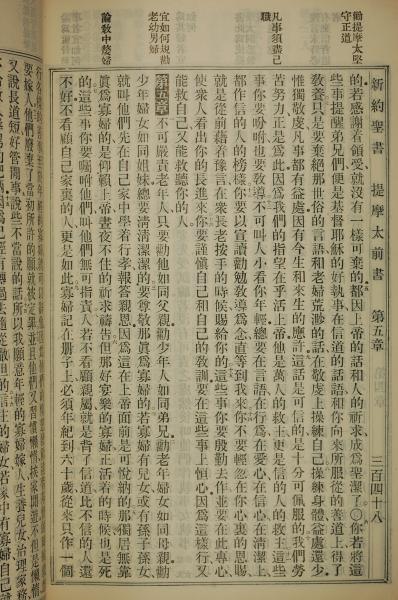 勸提摩太堅
守正道
凡事須盡己
職
宜如何規勸
老幼男婦
論教中嫠婦
新約聖書 提摩太前書 第五章 三百四十八
的若感謝着領受就沒有一樣可棄的都因上帝的話和人的祈求成爲聖潔○你若將這
些事提醒弟兄們便是基督耶穌的好執事在信道的話語和你向來所服從的善道上得了
教養只是要棄絕那世俗的言語和老婦荒渺的話在敬虔上操練自己操練身體益處還少
惟獨敬虔凡事都有益處因有今生和來生的應許這話是可信的是十分可佩服的我們勞
苦努力正是爲此因爲我們的指望在乎活上帝他是萬人的救主更是信的人的救主這些
事你要吩咐也要教導不可叫人小看你年輕總要在言語在行爲在愛心在信心在清潔上
都作信的人的榜樣你要以宣讀勸勉教導爲念直等到我來你不要輕忽在你心裏的恩賜
就是從前藉着豫言在衆長老按手的時候賜給你的這些事你要殷勤去作並要在此專心
使衆人看出你的長進來你要謹愼自己和自己的教訓要在這些事上恒心因爲這樣行又
能救自己又能救聽你的人
第五章 不可嚴責老年人只要勸他如同父親勸少年人如同弟兄勸老年婦女如同母親勸
少年婦女如同姐妹總要淸淸潔潔的要尊敬那眞爲寡婦的若寡婦有兒女或有孫子孫女
就叫他們先在自己家中學着行孝報答親恩因爲這在上帝面前是可悅納的那獨居無靠
眞爲寡婦的是仰賴上帝晝夜不住的祈求禱吿但那好宴樂的寡婦正活着的時候也是死
的這些事你要囑咐他們叫他們無可指責人若不看顧親屬就是背了信道比不信的人還
不好不看顧自己家裏的人更是如此寡婦記在册子上必須年紀到六十歲從來只作一個
要嫁人他們廢棄了當初所許的願就被定罪並且他們又習慣懶惰挨家閒遊不但是懶惰
又說長道短好管閒事說些不當說的話所以我願意年輕的寡婦嫁人生養兒女治理家務
已經有轉過去隨從撒但的信主的婦女若家中有寡婦自己就